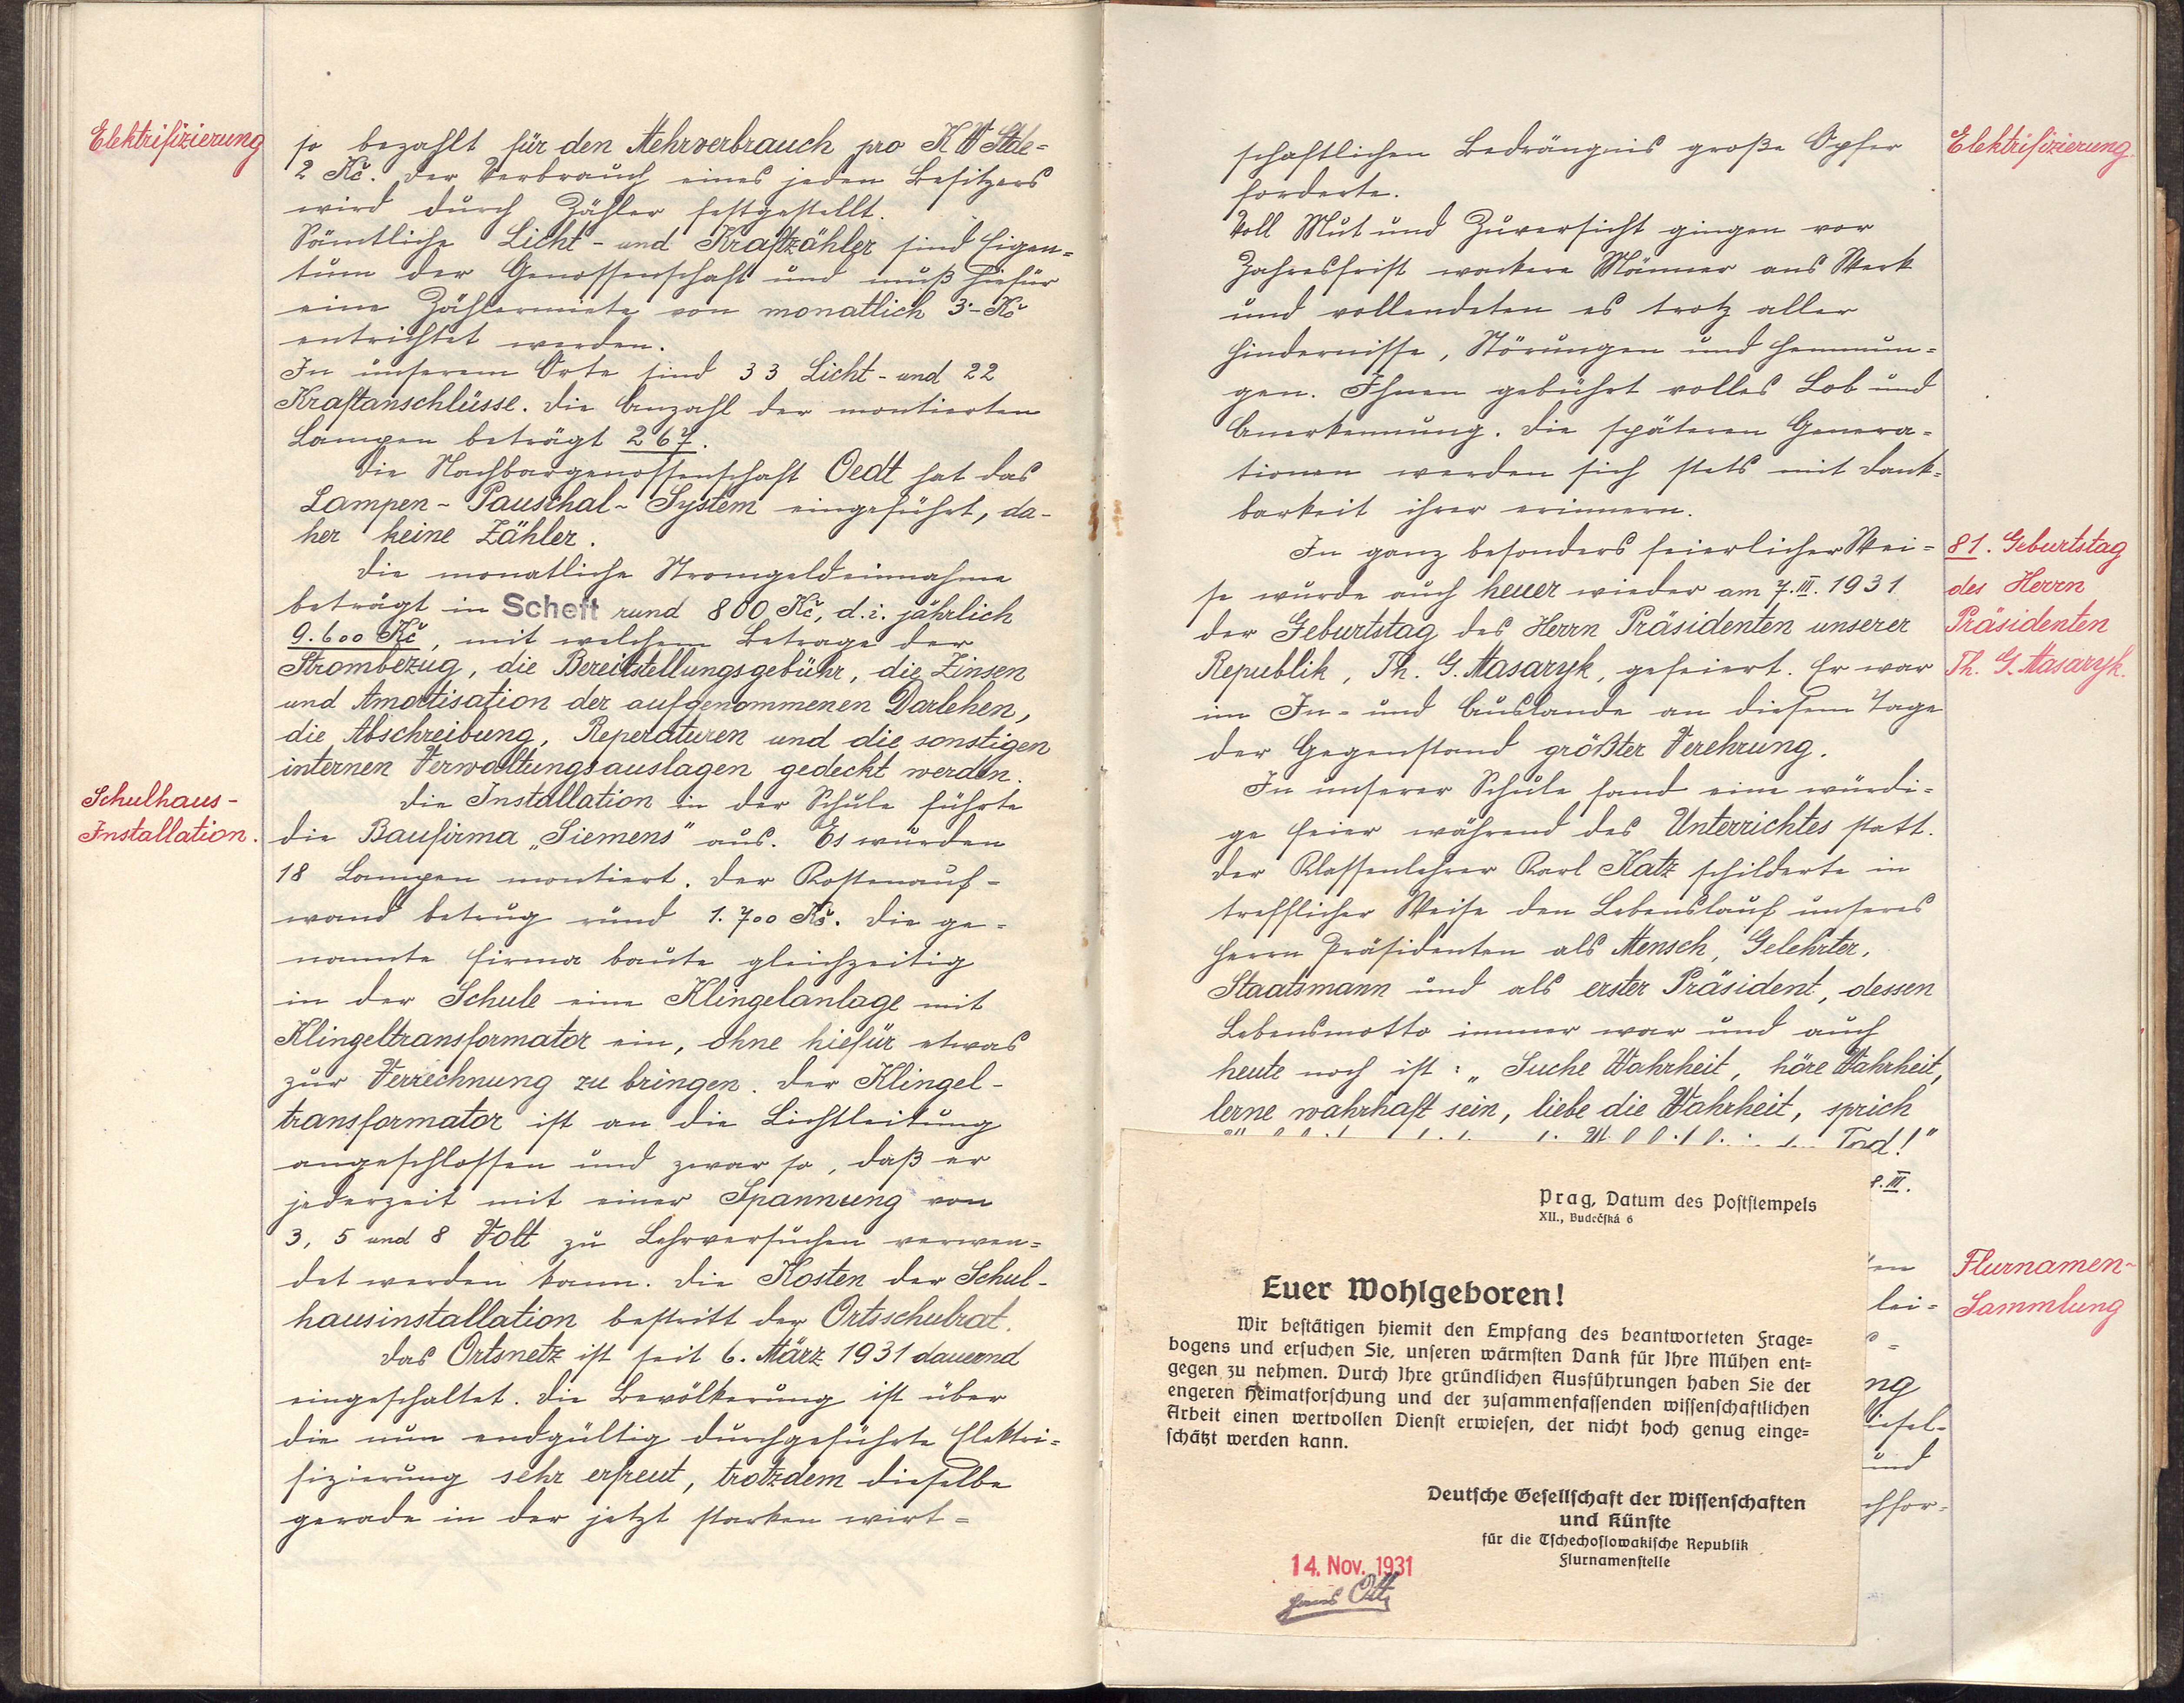 Elektrifizierung
so bezahlt für den Mehrverbrauch pro K W Stde=
2 Kč. Der Verbrauch eines jeden Besitzers
wird durch Zähler festgestellt.
Sämtliche Licht- und Kraftzähler sind Eigen=
tum der Genossenschaft und muß hiefür
eine Zählermiete von monatlich 3·- Kč
entrichtet werden.
In unserem Orte sind 33 Licht- und 22
Kraftanschlüsse. Die Anzahl der montierten
Lampen beträgt 267.
Die Nachbargenossenschaft Oedt hat das
Lampen- Pauschal- System eingeführt, da-
her keine Zähler.
Die monatliche Stromgeldeinnahme
beträgt in Scheft rund 800 Kč, d.i. jährlich
9.600 Kč, mit welchem Betrage der
Strombezug, die Bereitstellungsgebühr, die Zinsen
und Amortisation der aufgenommenen Darlehen,
die Abschreibung, Reperaturen und die sonstigen
internen Verwaltungsauslagen gedeckt werden.
Schulhaus-
Installation.
Die Installation in der Schule führte
die Baufirma „Siemens" aus. Es wurden
18 Lampen montiert. Der Kostenauf-
wand betrug rund 1.700 Kč. Die ge=
nannte Firma baute gleichzeitig
in der Schule eine Klingelanlage mit
Klingeltransformator ein, ohne hiefür etwas
zur Verrechnung zu bringen. Der Klingel-
transformator ist an die Lichtleitung
angeschlossen und zwar so, daß er
jederzeit mit einer Spannung von
3, 5 und 8 Volt zu Lehrversuchen verwen=
det werden kann. Die Kosten der Schul-
hausinstallation bestritt der Ortsschulrat.
Das Ortsnetz ist seit 6. März 1931 dauernd
eingeschaltet. Die Bevölkerung ist über
die nun endgültig durchgeführte Elektri=
fizierung sehr erfreut, trotzdem dieselbe
gerade in der jetzt starken wirt=
Elektrifizierung.
schaftlichen Bedrängnis große Opfer
forderte.
Voll Mut und Zuversicht gingen vor
Jahresfrist wackere Männer ans Werk
und vollendeten es trotz aller
Hindernisse, Störungen und Hemmun=
gen. Ihnen gebührt volles Lob und
Anerkennung. Die späteren Genera=
tionen werden sich stets mit Dank=
barkeit ihrer erinnern.
81. Geburtstag
des Herrn
Präsidenten
Th. G. Masaryk.
In ganz besonders feierlicher Wei=
se wurde auch heuer wieder am 7. III. 1931
der Geburtstag des Herrn Präsidenten unserer
Republik, Th. G. Masaryk, gefeiert. Er war
im In- und Auslande an diesem Tage
der Gegenstand größter Verehrung.
In unserer Schule fand eine würdi=
ge Feier während des Unterrichtes statt.
Der Klassenlehrer Karl Katz schilderte in
trefflicher Weise den Lebenslauf unseres
Herrn Präsidenten als Mensch, Gelehrter,
Staatsmann und als erster Präsident, dessen
Lebensmotto immer war und auch
heute noch ist: „Suche Wahrheit, höre Wahrheit,
lerne wahrhaft sein, liebe die Wahrheit, sprich
Tod!"
III.
Flurnamen-
Sammlung
lei=
ng
und
Prag, Datum des Poststempels
XII., Budečská 6
Euer Wohlgeboren!
Wir bestätigen hiemit den Empfang des beantworteten Frage=
bogens und ersuchen Sie, unseren wärmsten Dank für Ihre Mühen ent=
gegen zu nehmen. Durch Ihre gründlichen Ausführungen haben Sie der
engeren Heimatforschung und der zusammenfassenden wissenschaftlichen
Arbeit einen wertvollen Dienst erwiesen, der nicht hoch genug einge=
schätzt werden kann.
Deutsche Gesellschaft der Wissenschaften
und Künste
für die Tschechoslowakische Republik
Flurnamenstelle
14. Nov. 1931
Hans Ott